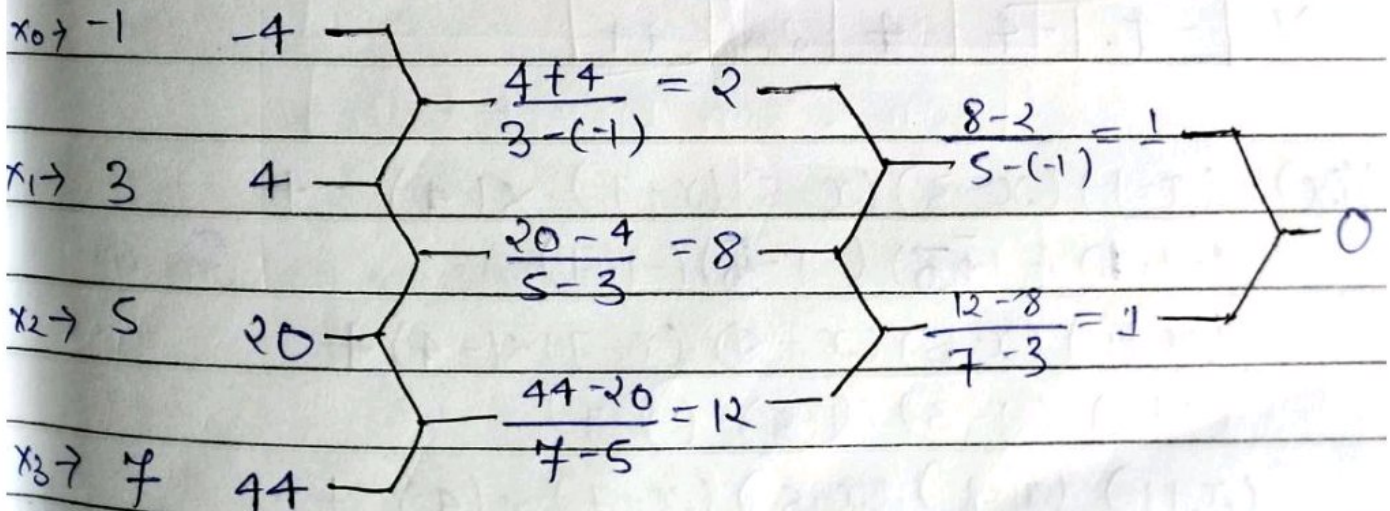 x₀→ -1 -4
4+4 / 3-(-1) = 2
8-2 / 5-(-1) = 1
x₁→ 3 4
0
20-4 / 5-3 = 8
x₂→ 5 20
12-8 / 7-3 = 1
44-20 / 7-5 = 12
x₃→ 7 44